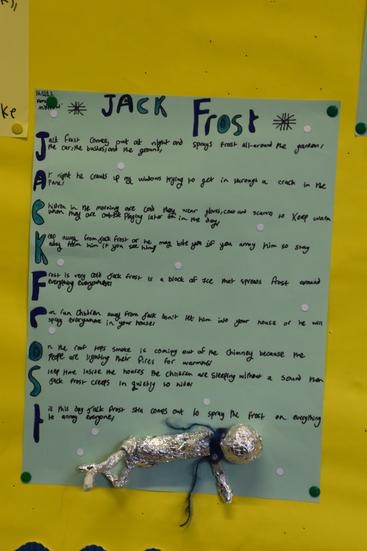 JACK Frost
Jack frost comes out at night and sprays frost all around the gardens,
the cars, the bushes and the ground,
At night he crawls up my windows trying to get in through a crack in the
Pane.
Children in the mornings are cold they wear gloves, coats and scarfs to keep warm
when they are outside playing later on in the day.
Keep away from Jack frost or he may bite you if you annoy him so stay
away from him if you see him
Frost is very cold Jack frost is a block of ice that spreads frost around
everything everywhere
run run Children away from Jack Don't let him into your house or he will
spray everywhere in your house
On the roof tops smoke is coming out of the Chimney because the
People are lighting their fires for warmth
Sleep time inside the houses the Children are sleeping without a sound then
Jack frost creeps in quietly to
to this day Jack frost still comes out to spray the frost on everything
to annoy everyone,
ke